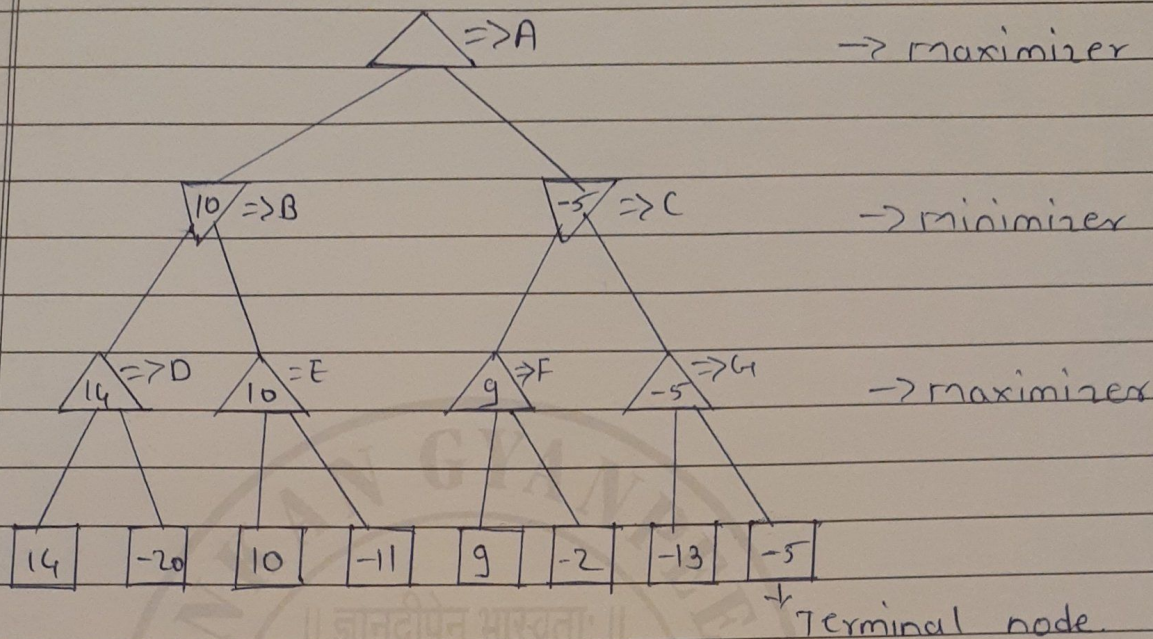 =>A -> maximizer
10 =>B -5 =>C -> minimizer
14 =>D 10 =E 9 =>F -5 =>G -> maximizer
14 -20 10 -11 9 -2 -13 -5
Terminal node.
NYAN GYANPEE
॥ ज्ञानदीपेन भास्वता: ॥